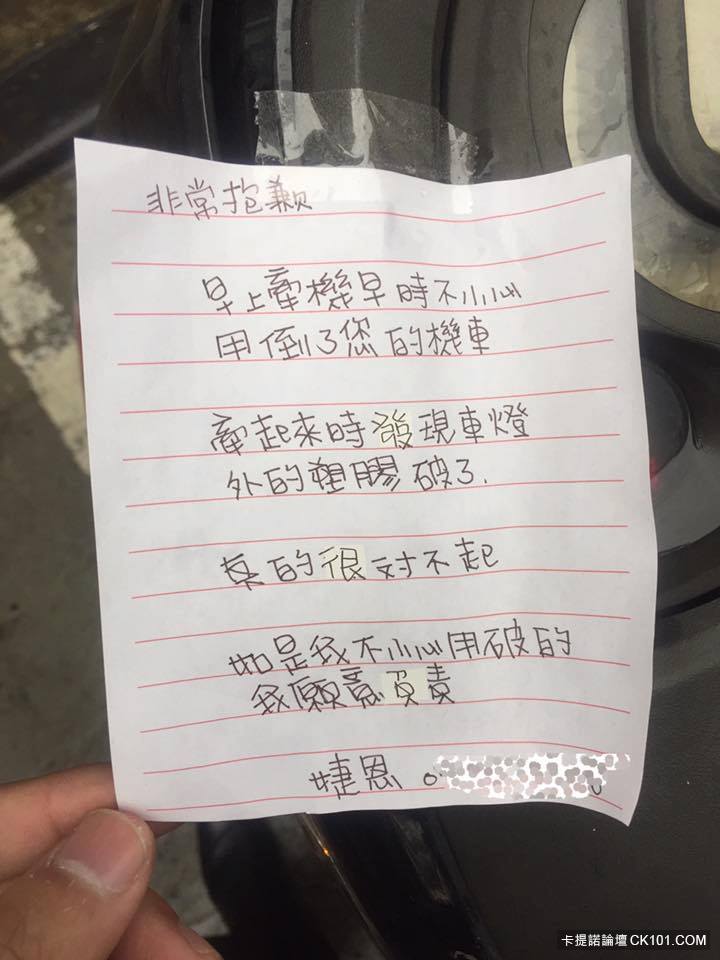 非常抱歉
早上牽機早時不小心
用倒了您的機車
牽起來時發現車燈
外的塑膠破了.
真的很对不起
如是我不小心用破的
我願意負責
婕恩 0
卡提諾論壇 CK101.COM